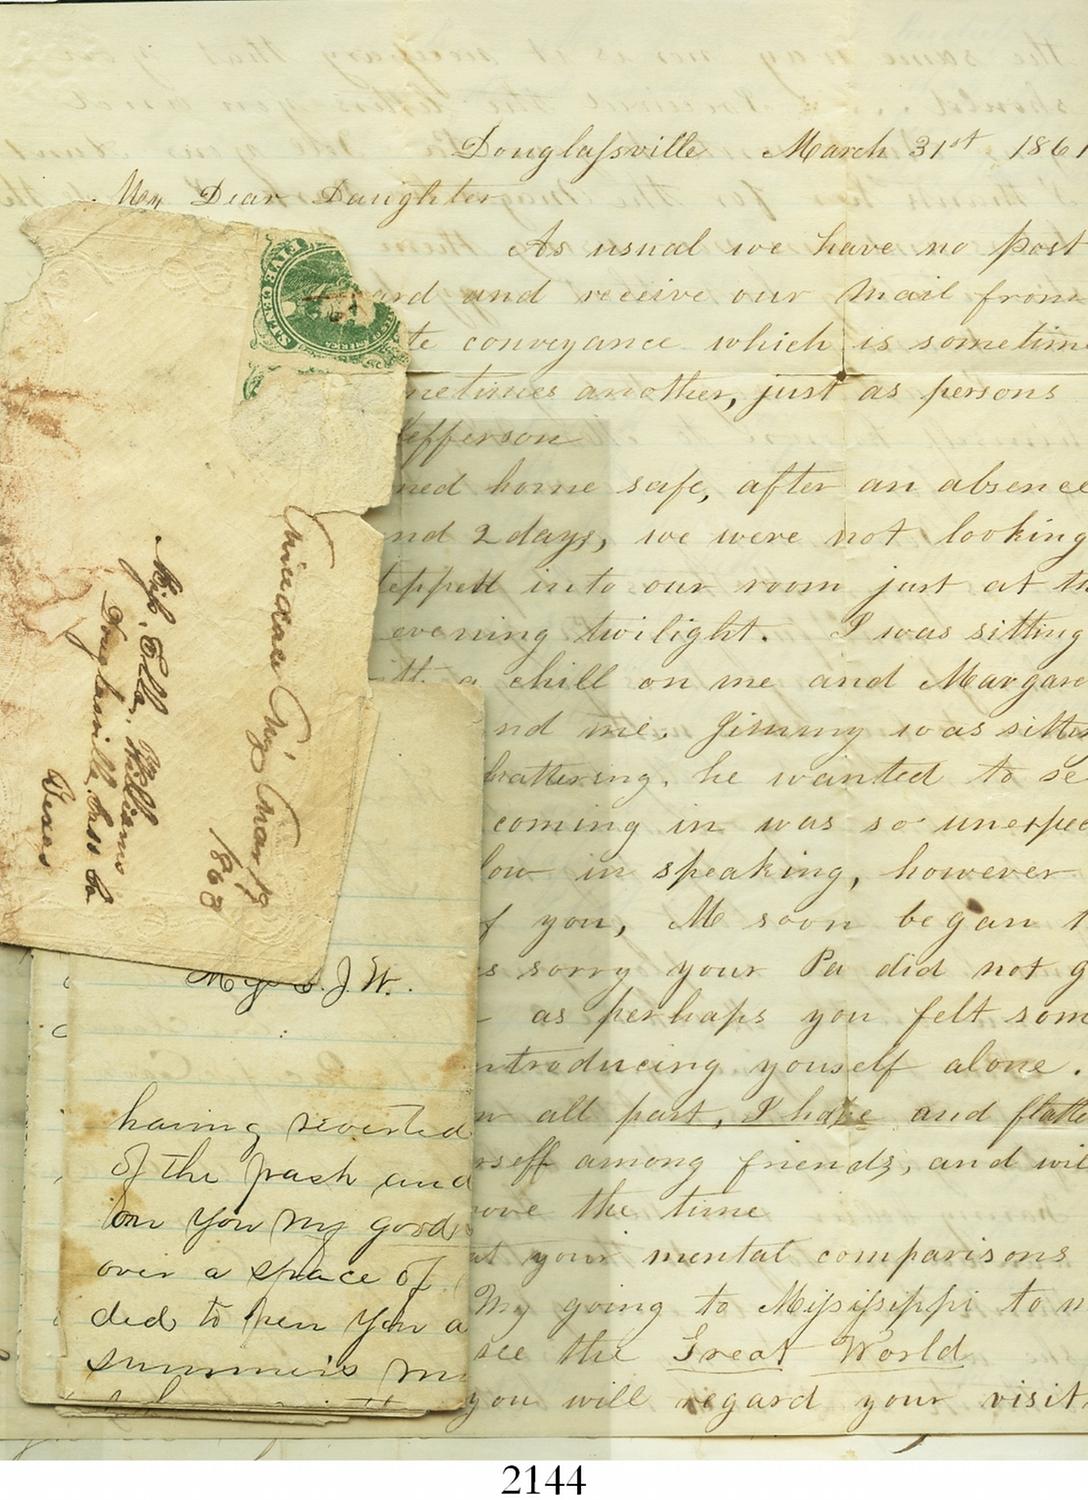 Douglassville March 31st 1861
My Dear Daughter
As usual we have no post
and receive our mail from
te conveyance which is sometime
metimes another, just as persons
Jefferson
ned home safe, after an absence
nd 2 days, we were not looking
tepped into our room just at th
evening twilight. I was sitting
a chill on me and Margare
nd me. Jimmy was sittin
he wanted to se
coming in was so unexpec
low in speaking, however
f you, M soon began t
s sorry your Pa did not g
as perhaps you felt som
ntroducing yourself alone.
all past, I hope and flatte
rself among friends, and wil
rove the time
at your mental comparisons
My going to Missisippi to
see the Great World
you will regard your visit
Miss. Ella. Williams
Douglassville, Cass Co
Texas
1863
J. W.
having reverted
of the past and
on you my good
over a space of
ded to pen you a
summers
2144